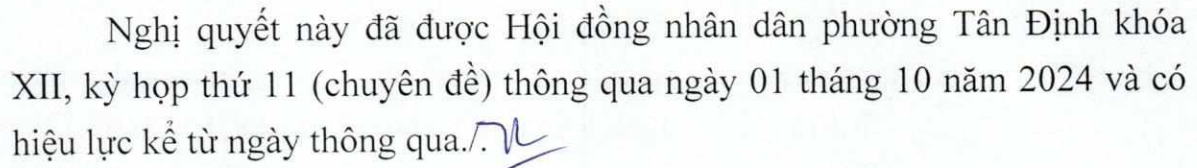 Nghị quyết này đã được Hội đồng nhân dân phường Tân Định khóa
XII, kỳ họp thứ 11 (chuyên đề) thông qua ngày 01 tháng 10 năm 2024 và có
hiệu lực kể từ ngày thông qua./.